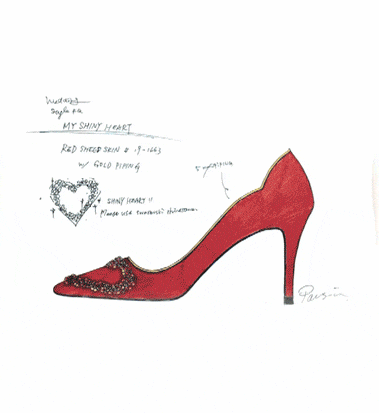 MY SHINY HEART
RED SHEEP SKIN # 19-1663
w/ GOLD PIPING
SHINY HEART !!
Please use swarovski rhinestones
piping